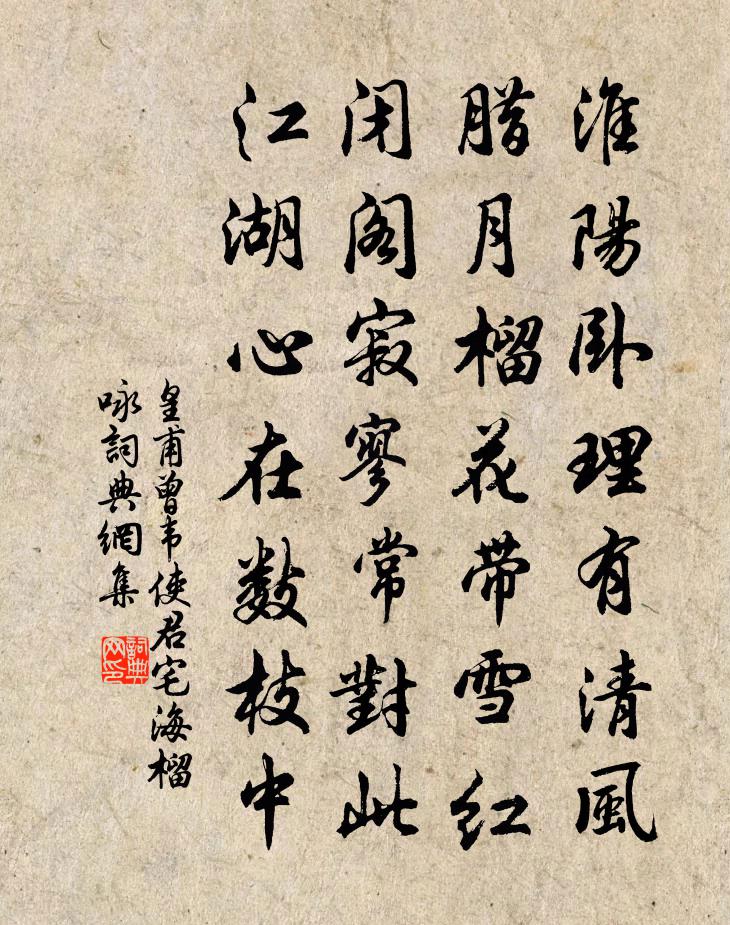 淮陽卧理有清風
腊月榴花带雪紅
闭阁寂寥常對此
江湖心在数枝中
皇甫曾韦使君宅海榴
咏詞典網集
詞典
网印